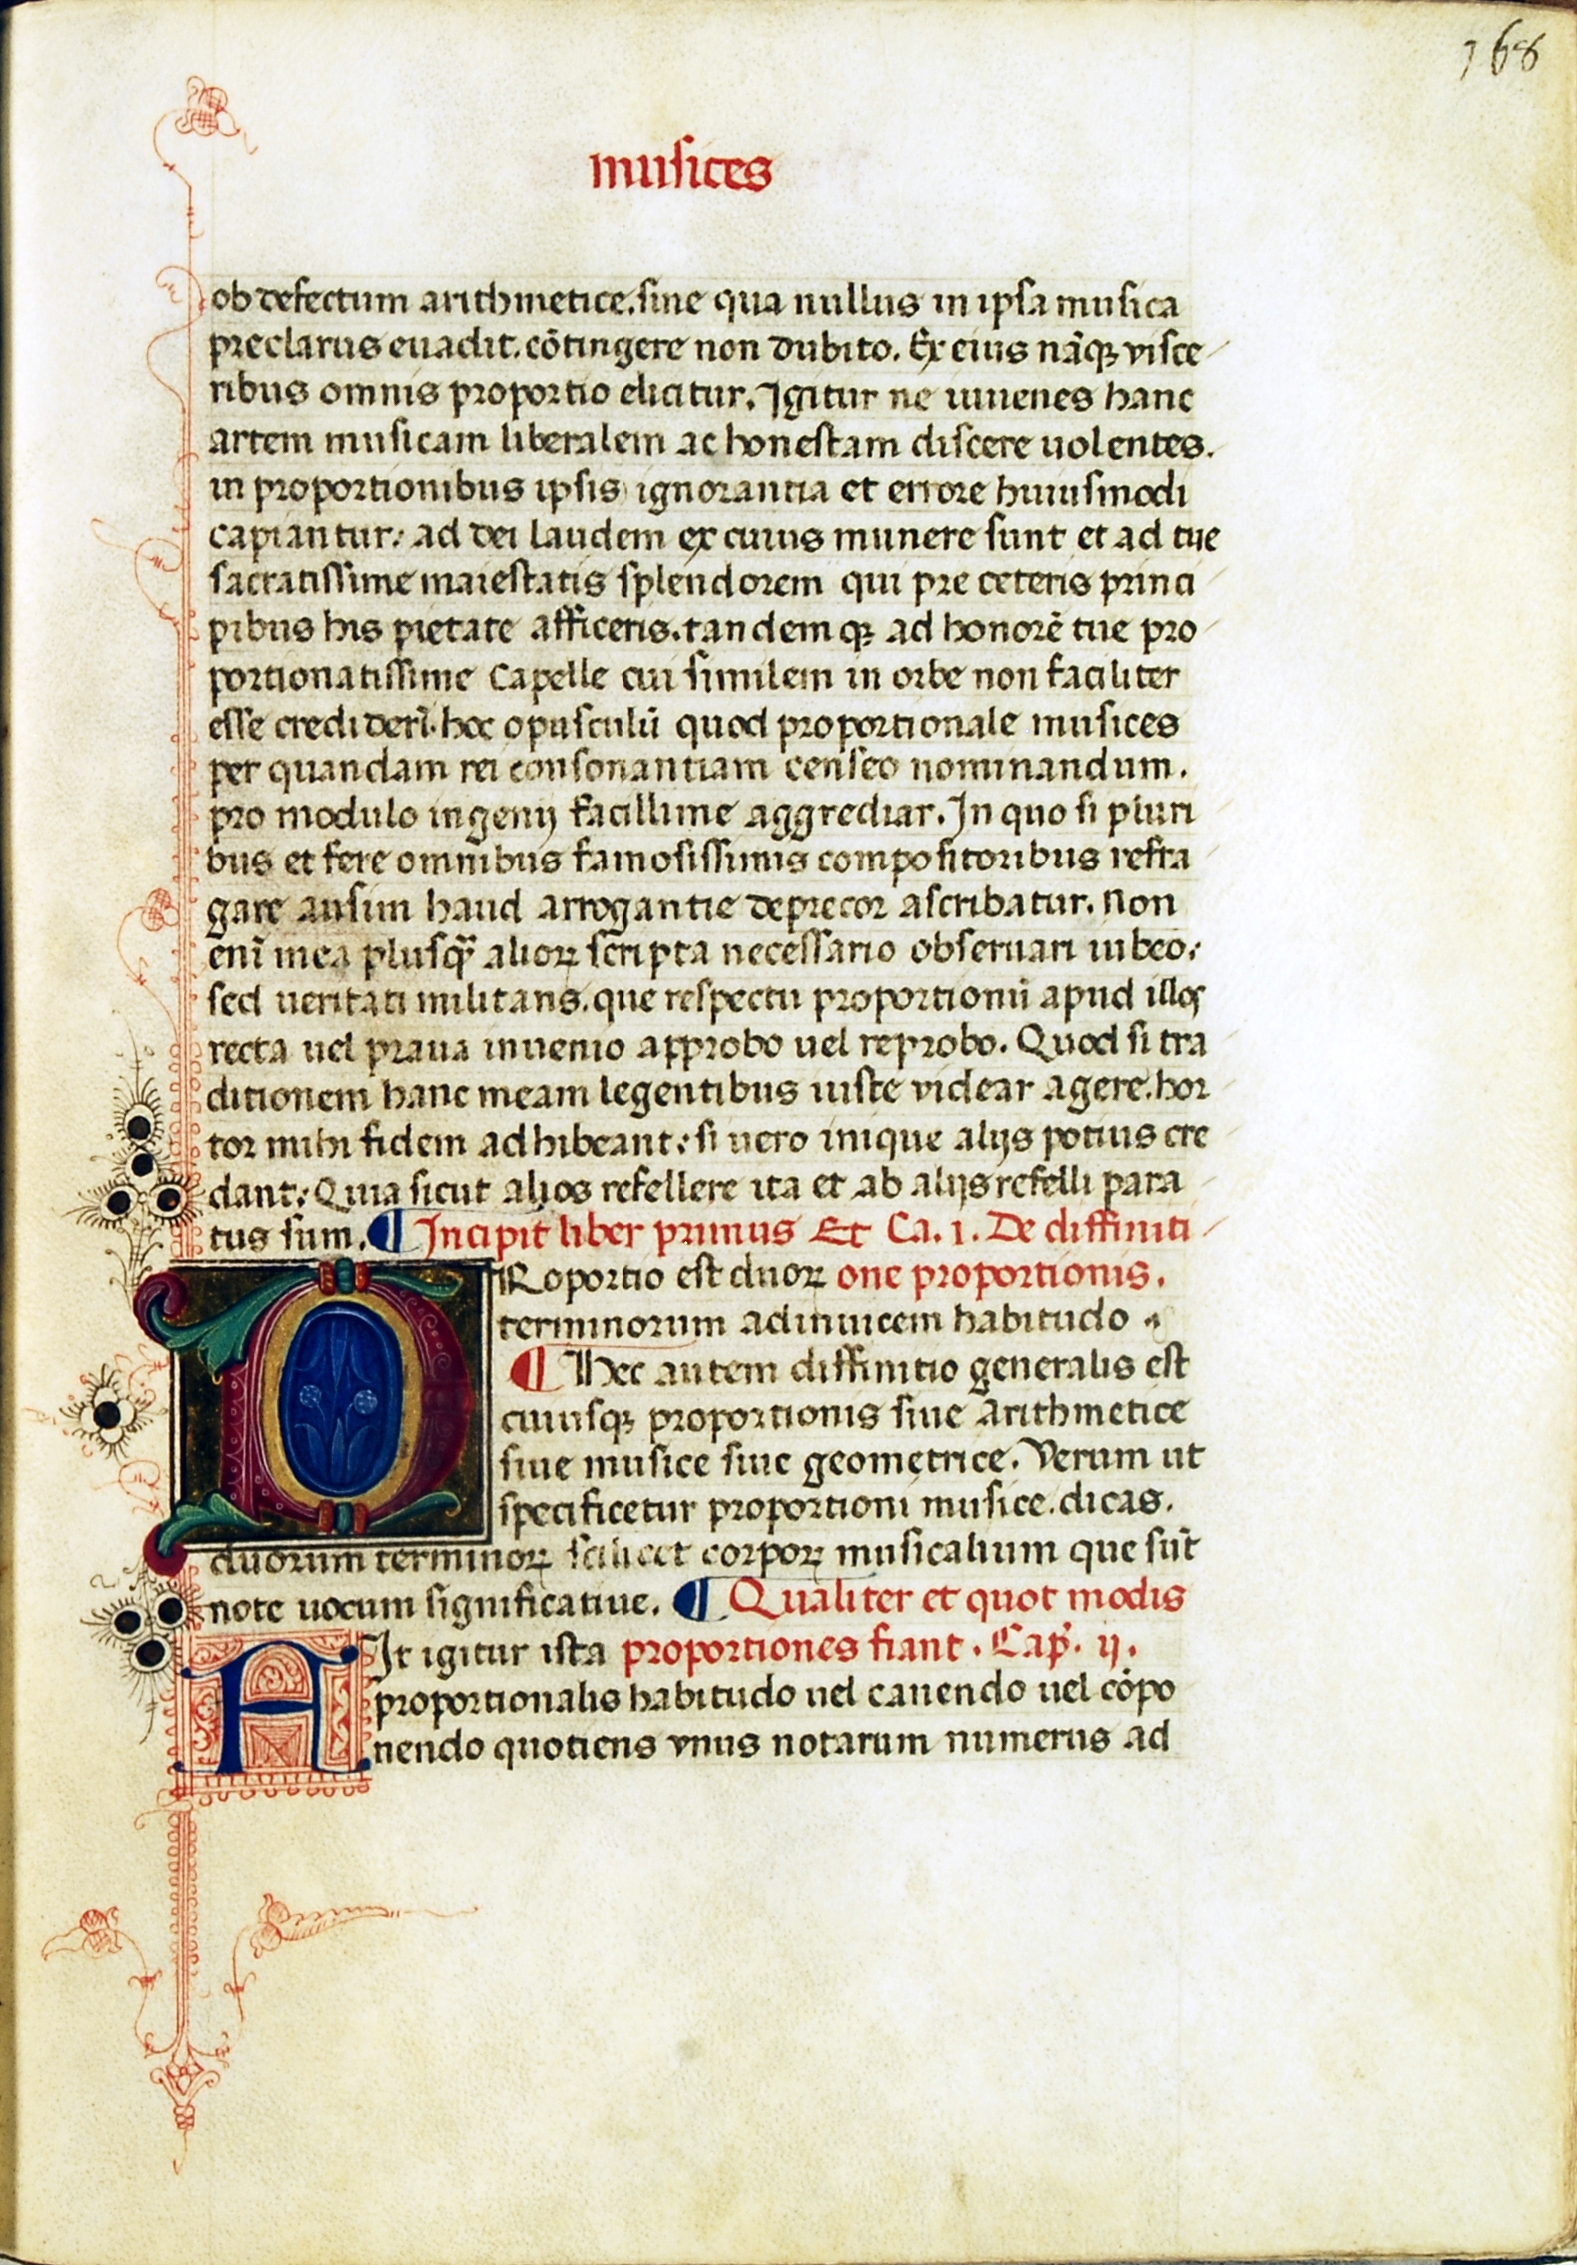 168
musices
ob defectum arithmetice. sine qua nullus in ipsa musica
preclarus euadit. cōtingere non dubito. Ex eius nāqꝫ visce
ribus omnis proportio elicitur. Igitur ne iuuenes hanc
artem musicam liberalem ac honestam discere uolentes.
in proportionibus ipsis ignorantia et errore huiusmodi
capiantur: ad dei laudem ex cuius munere sunt et ad tue
sacratissime maiestatis splendorem qui pre ceteris princi
pibus his pietate afficeris. tandemqꝫ ad honorē tue pro
portionatissime Capelle cui similem in orbe non faciliter
esse crediderī. hoc opusculū quod proportionale musices
per quandam rei consonantiam censeo nominandum.
pro modulo ingenij facillime aggrediar. In quo si pluri
bus et fere omnibus famosissimis compositoribus refra
gare ausim haud arrogantie deprecor ascribatur. Non
enī mea plusqꝫ̄ alioꝝ scripta necessario obseruari iubeo:
sed ueritati militans. que respectu proportionū apud illos
recta uel praua inuenio approbo uel reprobo. Quod si tra
ditionem hanc meam legentibus iuste videar agere. hor
tor mihi fidem adhibeant: si uero inique alijs potius cre
dant: Quia sicut alios refellere ita et ab alijs refelli para
tus sum. ¶ Incipit liber primus Et Ca. 1. De diffiniti
PRoportio est duoꝝ one proportionis.
terminorum adinuicem habitudo
¶ Hec autem diffinitio generalis est
cuiusqꝫ proportionis siue arithmetice
siue musice siue geometrice. Verum ut
specificetur proportioni musice. dicas.
duorum terminoꝝ scilicet corpoꝝ musicalium que sūt
note uocum significatiue. ¶ Qualiter et quot modis
FIt igitur ista proportiones fiant. Cap̄. ij.
proportionalis habitudo uel canendo uel cōpo
nendo quotiens vnus notarum numerus ad